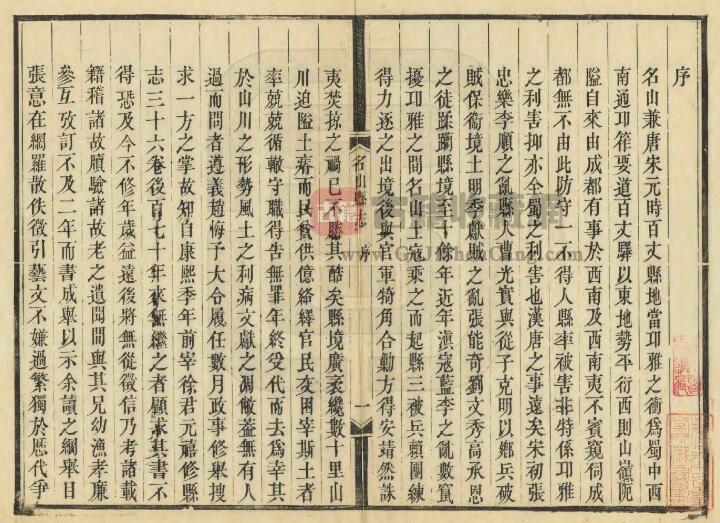 序
名山兼唐宋元時百丈縣地當邛雅之衝爲蜀中西
南通邛筰要道百丈驛以東地勢平衍西則山嶺阨
隘自來由成都有事於西南及西南夷不賓窺伺成
都無不由此防守一不得人縣率被害非特係邛雅
之利害抑亦全蜀之利害也漢唐之事遠矣宋初張
忠樂李順之亂縣人曹光實與從子克明以鄉兵破
賊保衛境土明季獻賊之亂張能奇劉文秀高承恩
之徒蹂躪縣境至十餘年近年滇寇藍李之亂數竄
擾邛雅之間名山土寇乘之而起縣三被兵賴團練
得力逐之出境後與官軍犄角合勦方得安靖然誅
夷焚掠之禍已不勝其酷矣縣境廣袤纔數十里山
川迫隘土瘠而民貧供億絡繹官民交困宰斯土者
率兢兢循轍守職得告無罪年終受代而去爲幸其
於山川之形勢風土之利病文獻之凋敝蓋無有人
過而問者遵義趙悔予大令履任數月政事修舉搜
求一方之掌故知自康熙季年前宰徐君元禧修縣
志三十六卷後百七十年來無繼之者顧求其書不
得恐及今不修年歲益遠後將無從徵信乃考諸載
籍稽諸故牘驗諸故老之遺聞與其兄幼漁孝廉
參互攷訂不及二年而書成舉以示余讀之綱舉目
張意在網羅散佚徵引藝文不嫌過繁獨於歷代爭
名山縣志
序
一
古籍收藏網
www.GuJiShouCang.com